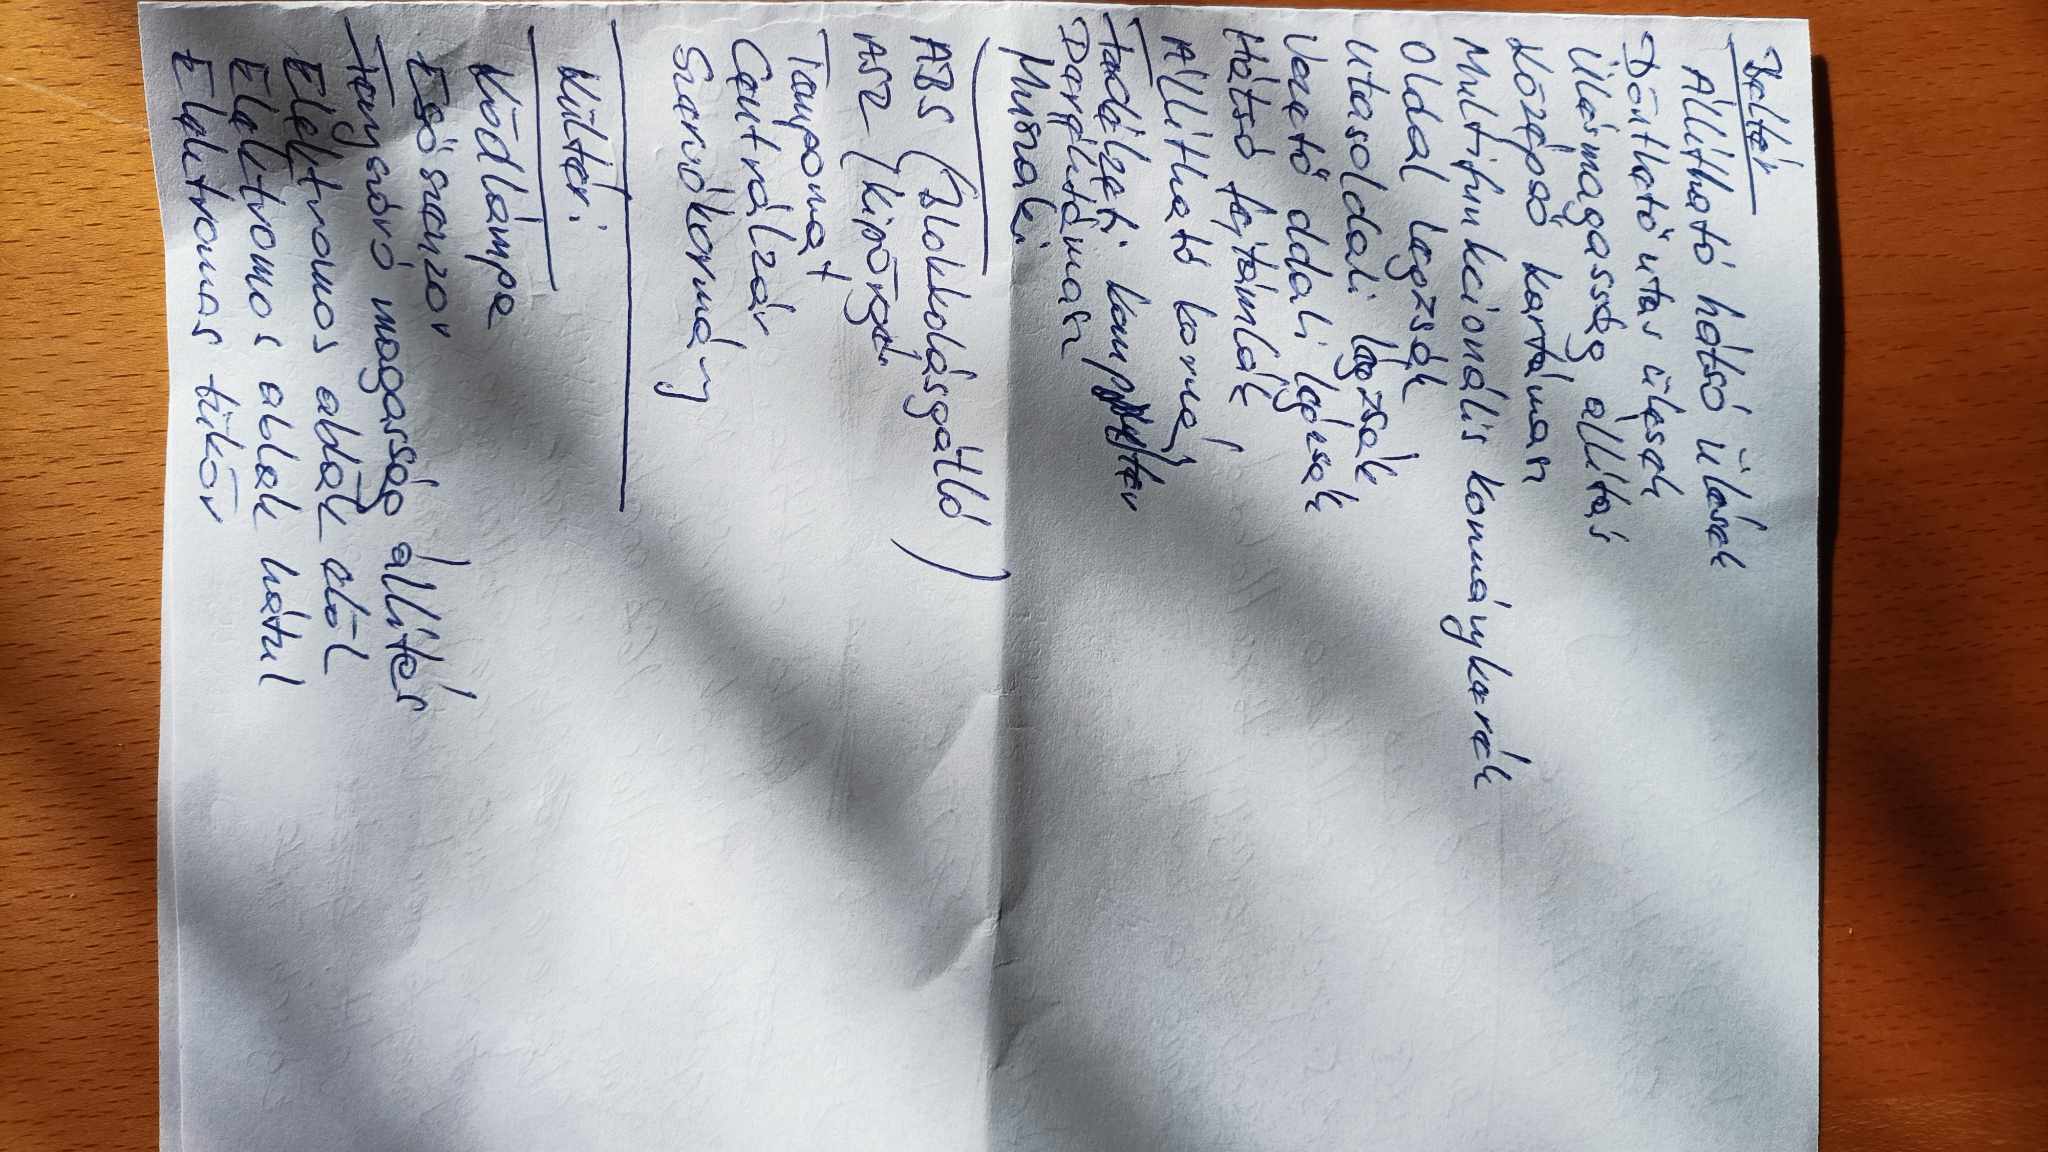 Beltér
Állítható hátsó ülések
Dönthető utas ülések
Ülésmagasság állítás
Középső kartámasz
Multifunkcionális kormánykerék
Oldal légzsák
Utasoldali légzsák
Vezető oldali légzsák
Hátsó fejtámlák
Állítható kormány
Fedélzeti komputer
Deréktámasz
Műszaki
ABS (Blokkolásgátló)
ASZ (kipörgés
Tempomat
Centrálzár
Szervókormány
Kültéri
Ködlámpa
Esőszenzor
Fényszóró magasság állítás
Elektromos ablak elöl
Elektromos ablak hátul
Elektromos tükör